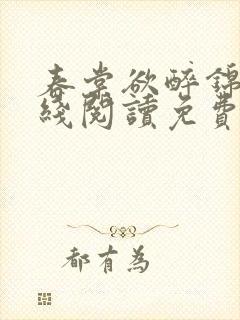 春棠欲醉錦
綫閱讀免費
都有為